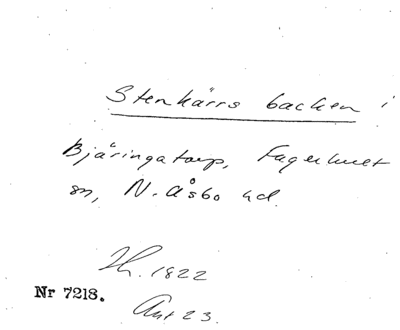 Stenkärrs backen i
Bjäringatorp, Fagerhult
sn, N. Åsbo hd.
Th. 1822
Nr 7218.
Ant 23.